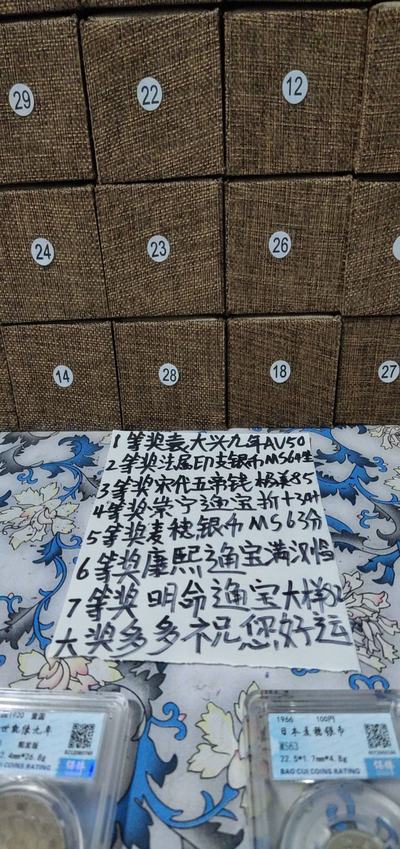 29
22
12
24
23
26
14
28
18
27
1等奖袁大头九年AU50
2等奖法属印支银币MS64坐
3等奖宋代五帝钱 极美85
4等奖崇宁通宝折十
5等奖麦穗银币MS63分
6等奖康熙通宝满汉
7等奖明命通宝大样82
大奖多多祝您好运
1920
世凯像九年
26.8g
COINS RATING
1966 100円
日本麦穗银币
MS63
22.5*1.7mm*4.8g
BAO CUI COINS RATING